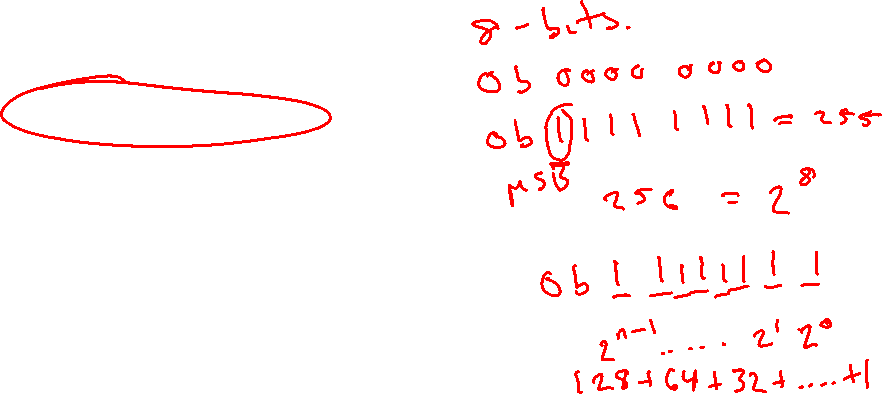 8-bits.
0b 0000 0000
0b 1111 1111 = 255
MSB
256 = 2^8
0b 1 1111 1 1
2^n-1 ..... 2^1 2^0
128+64+32+....+1